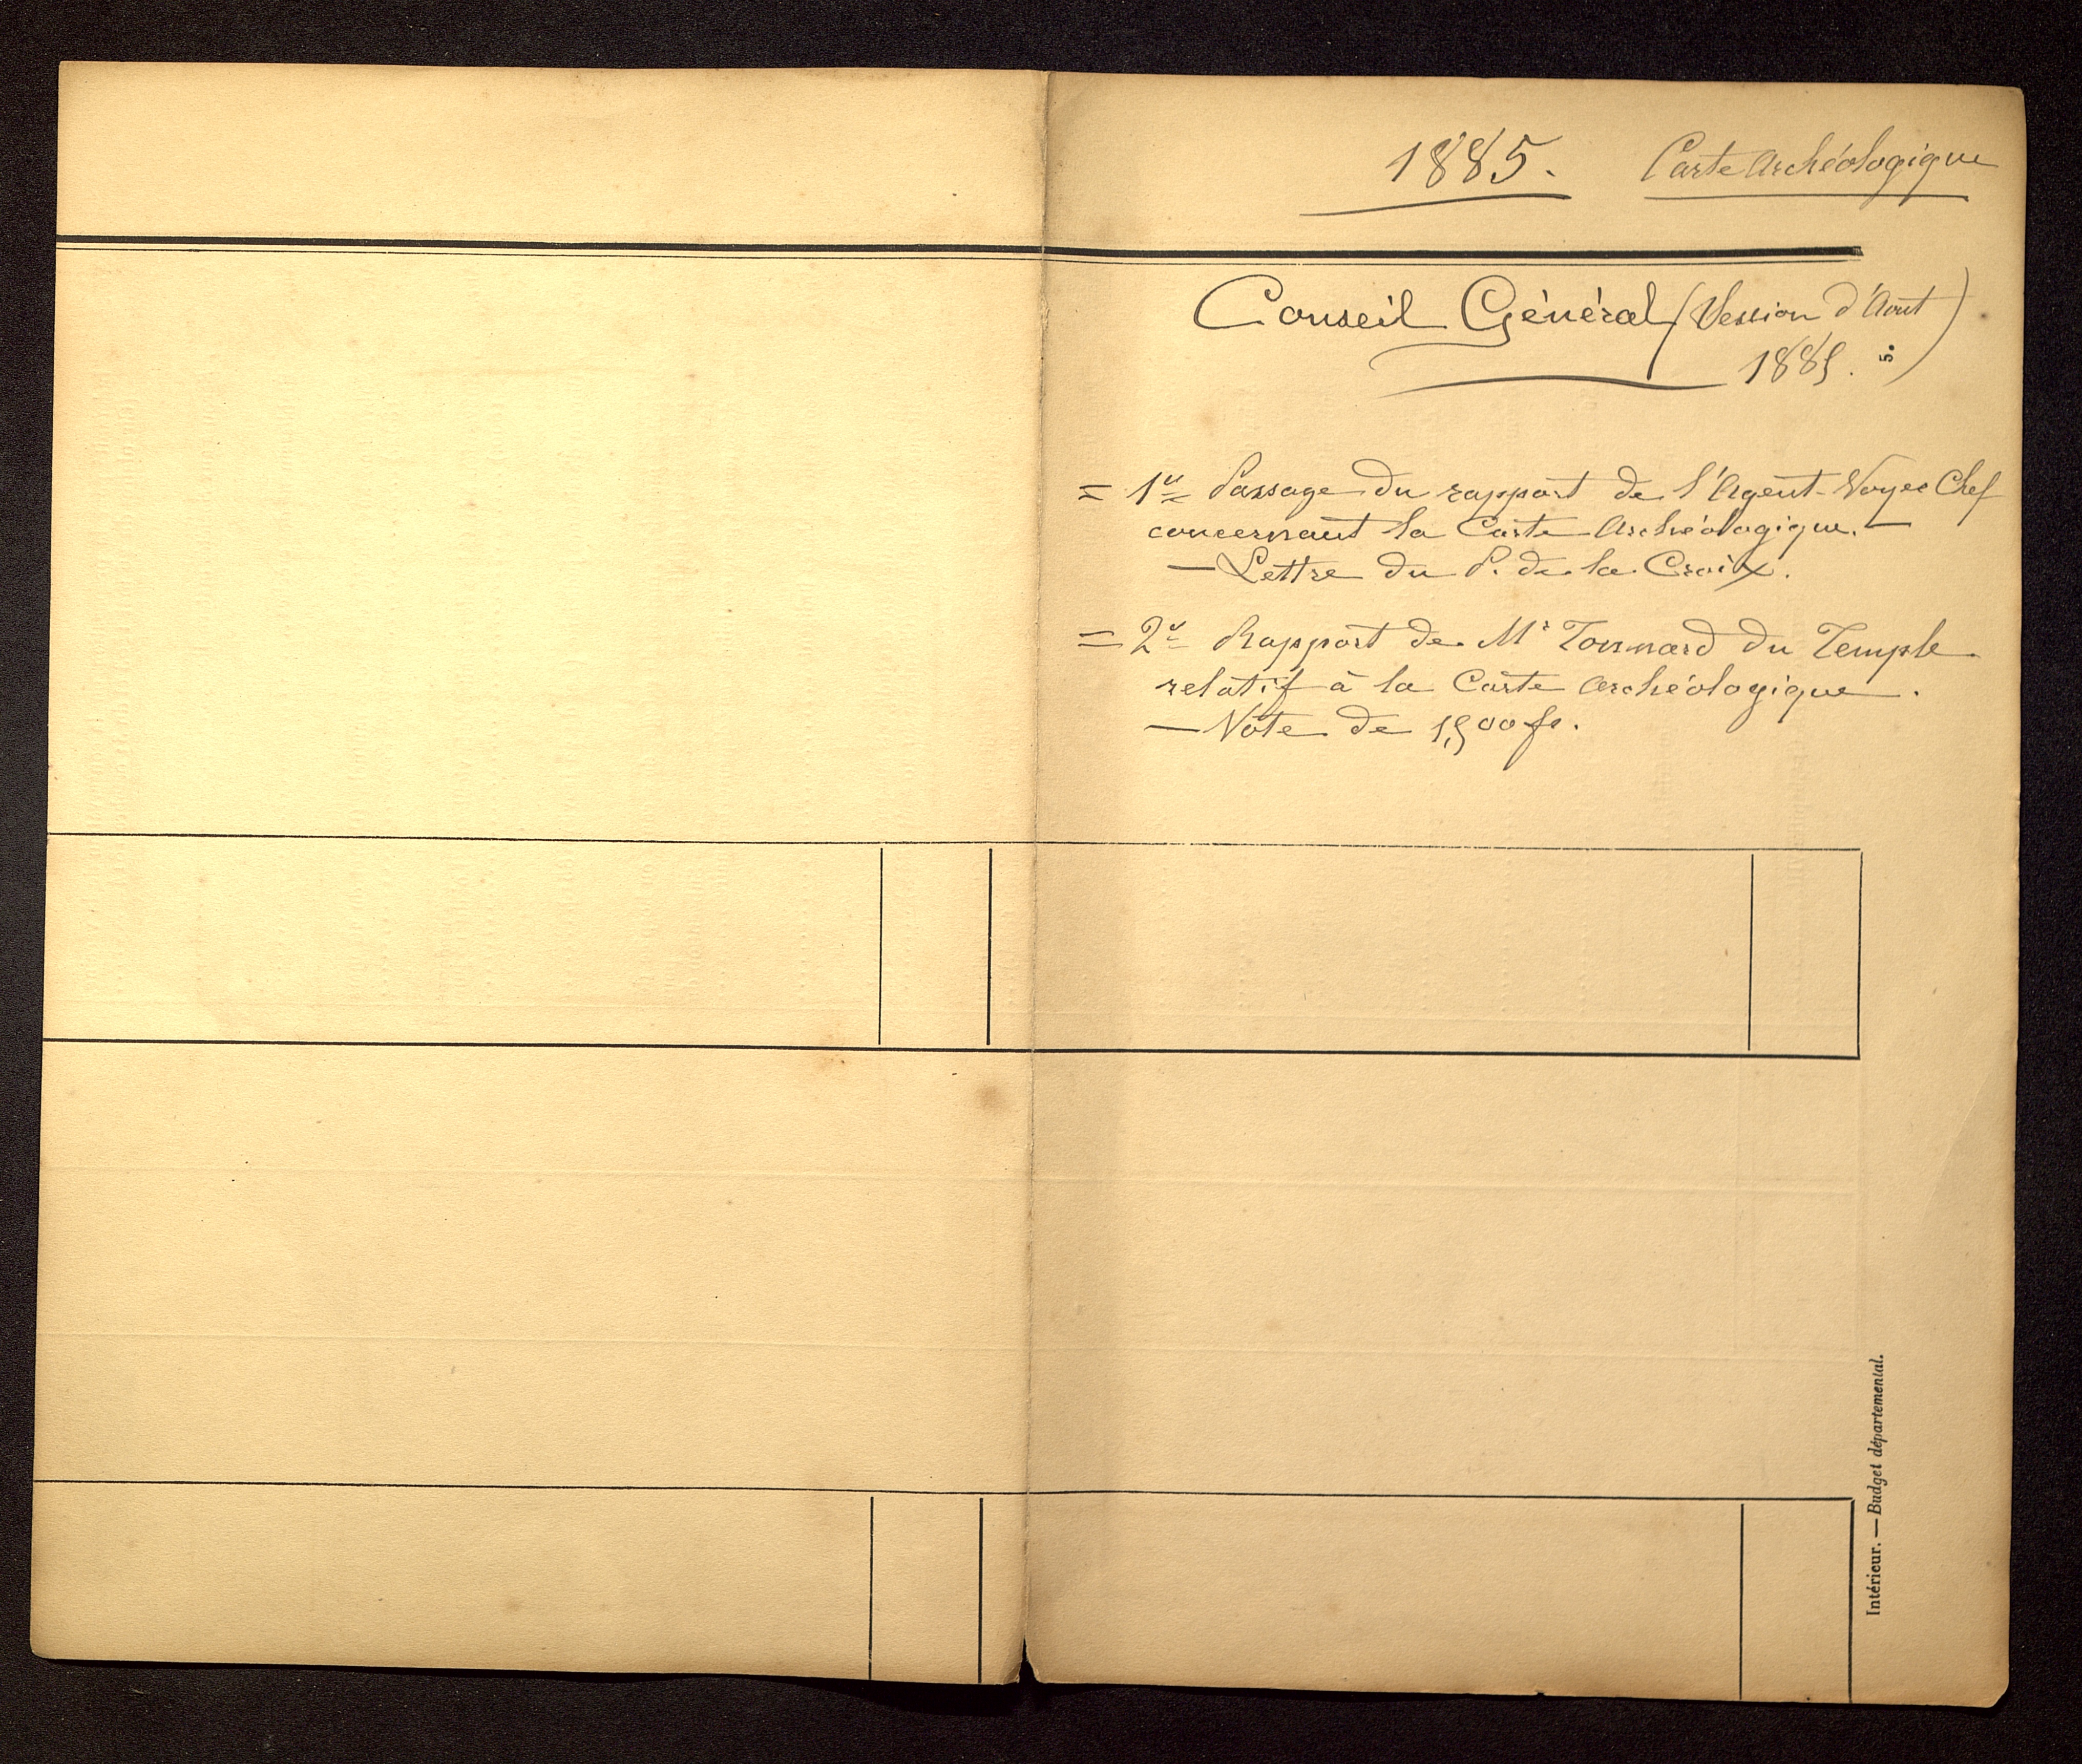 1885. Carte Archéologique
Conseil Général (Session d'Août
1885. 5.)
= 1º Passage du rapport de l'Agent-Voyer Chef
concernant la Carte Archéologique. —
— Lettre du P. de la Croix.
= 2º Rapport de Mr Tonnard du Temple
relatif à la Carte Archéologique.
— Vote de 1,500 fr.
Intérieur. — Budget départemental.